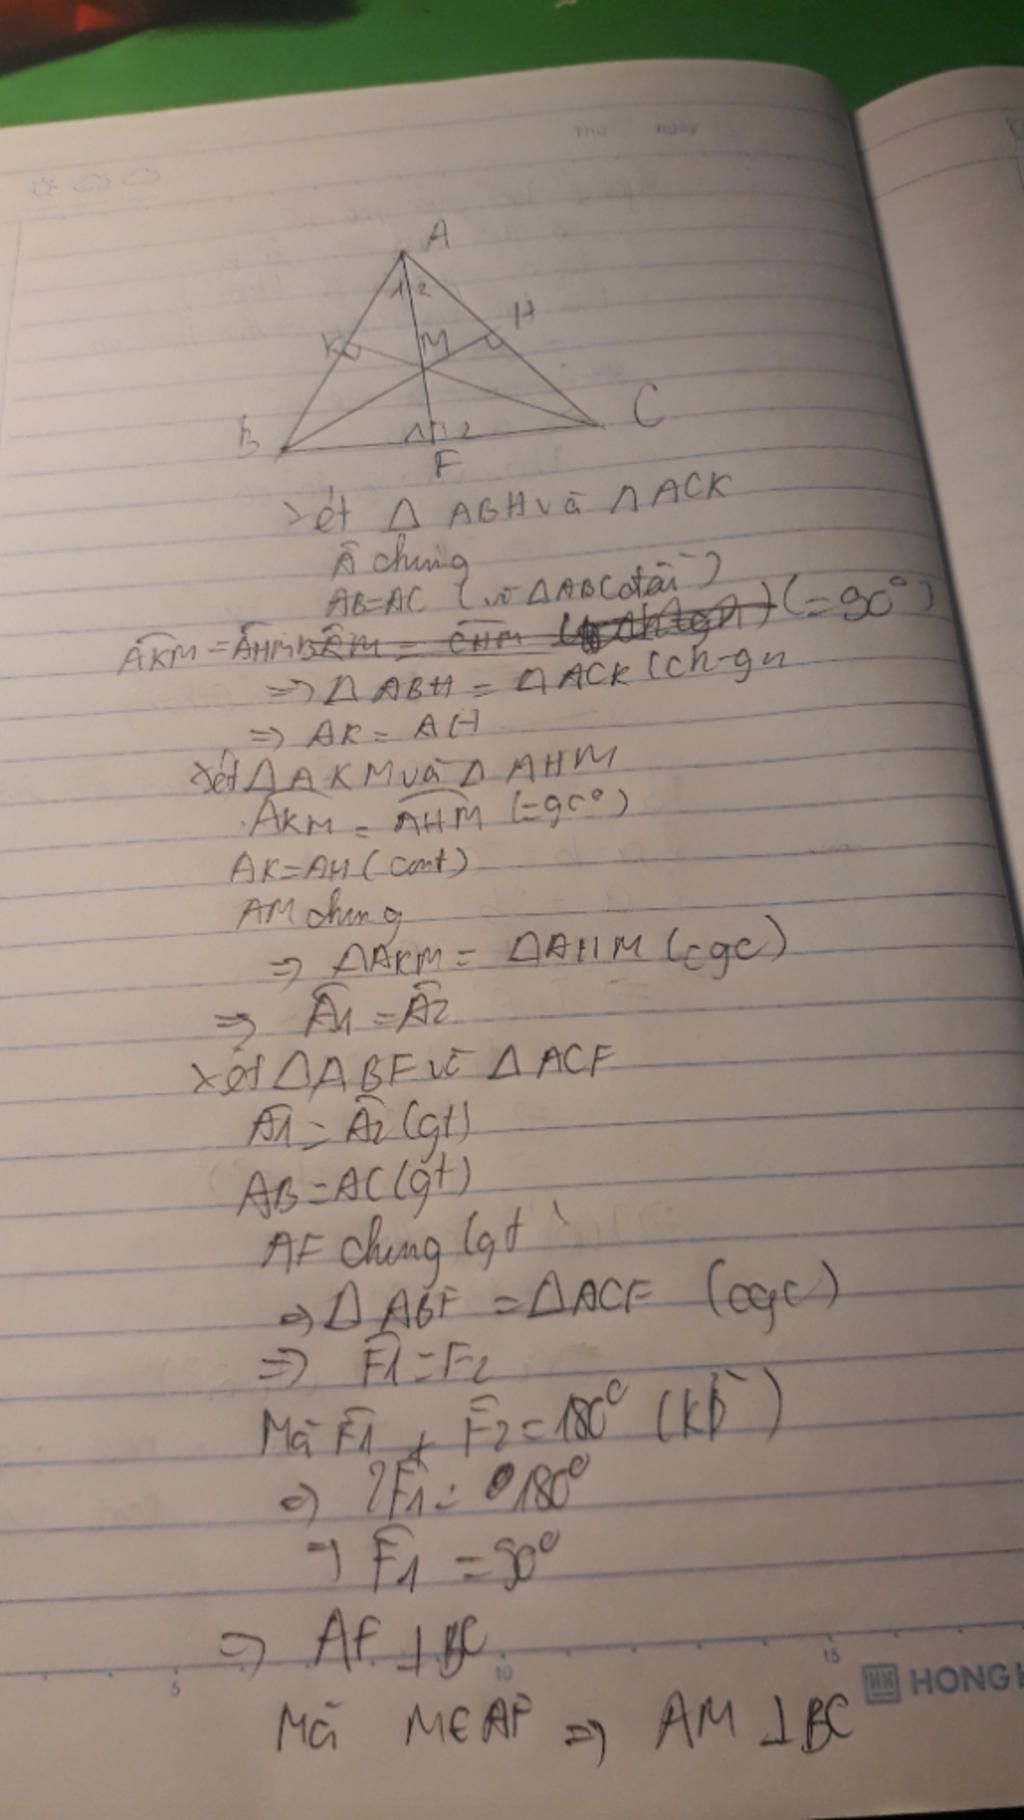 Thứ ngày
A
1 2
K M H
B 1 2 C
F
Xét Δ ABH và Δ ACK
Â chung
AB=AC (vì ΔABC đều)
AKM = AHM BKM = CHM (=90°)
=> Δ ABH = Δ ACK (ch-gn
=> AK = AH
Xét Δ AKM và Δ AHM
AKM = AHM (=90°)
AK=AH (cmt)
AM chung
=> ΔAKM = ΔAHM (cgc)
=> A1 = A2
Xét ΔABF và Δ ACF
A1 = A2 (gt)
AB=AC (gt)
AF chung (gt)
=> Δ ABF = ΔACF (cgc)
=> F1 = F2
Mà F1 + F2 = 180° (kb)
=> 2F1 = 180°
=> F1 = 90°
=> AF ⊥ BC
5 10 15
HONG
Mà M∈AF => AM ⊥ BC